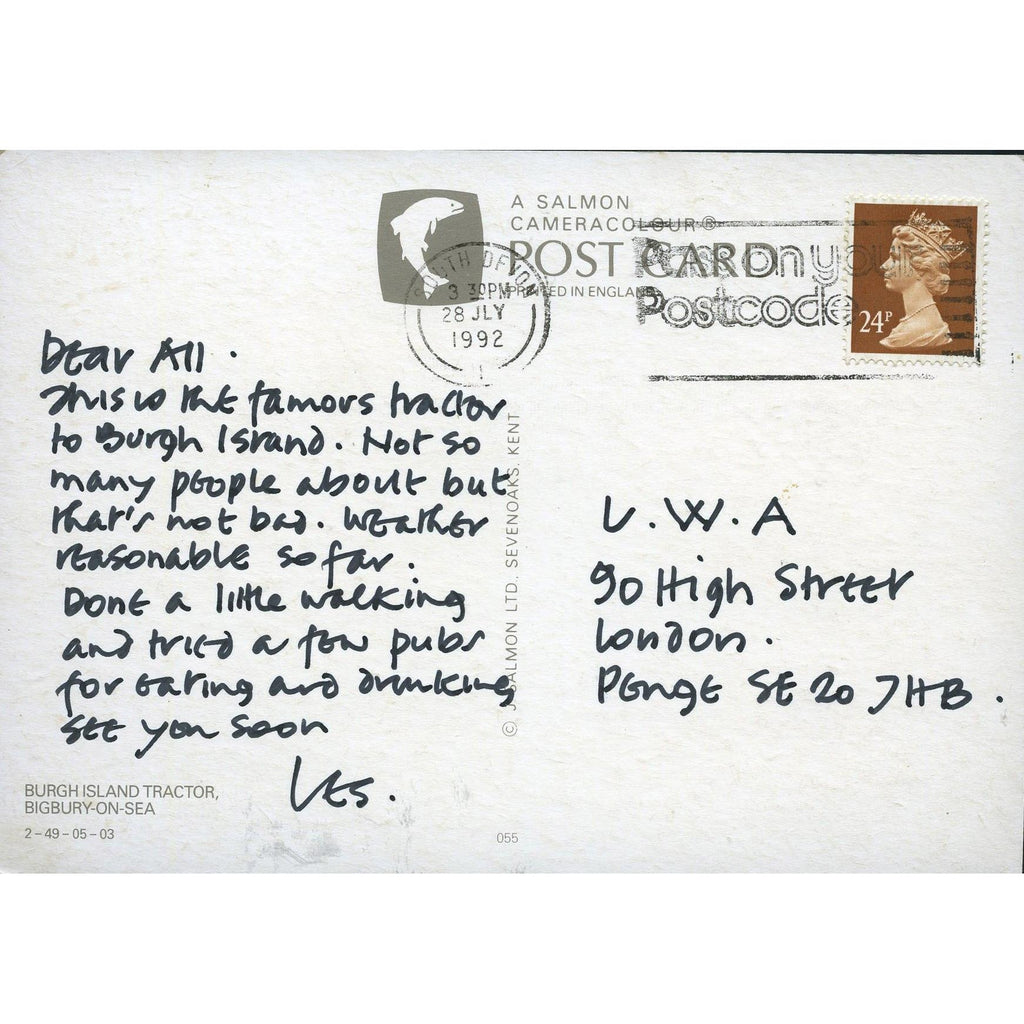 A SALMON
CAMERACOLOUR®
POST CARD
PRINTED IN ENGLAND
SOUTH DEVON
3 30PM
28 JLY
1992
Pass on your
Postcode
24P
Dear All.
This is the famous tractor
to Burgh Island. Not so
many people about but
that's not bad. Weather
reasonable so far.
Done a little walking
and tried a few pubs
for eating and drinking
see you soon
Les.
© J. SALMON LTD. SEVENOAKS. KENT
L.W.A
90 High Street
London.
Penge SE20 7HB.
BURGH ISLAND TRACTOR,
BIGBURY-ON-SEA
2-49-05-03
055